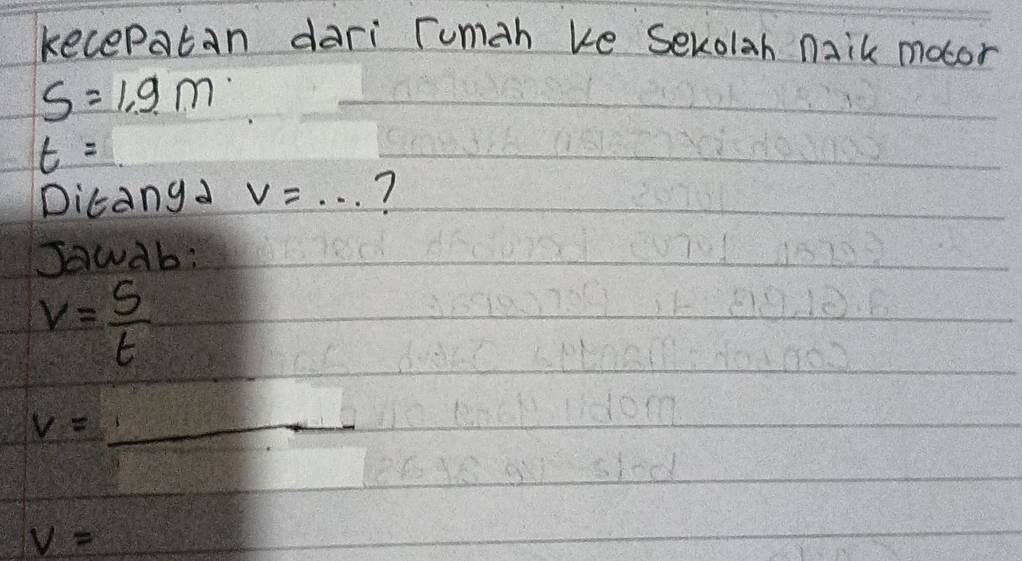 kecepatan dari rumah ke Sekolah naik motor
S = 1,9 m
t =
Ditanya V = ...?
Jawab:
V = S/t
V =
V =